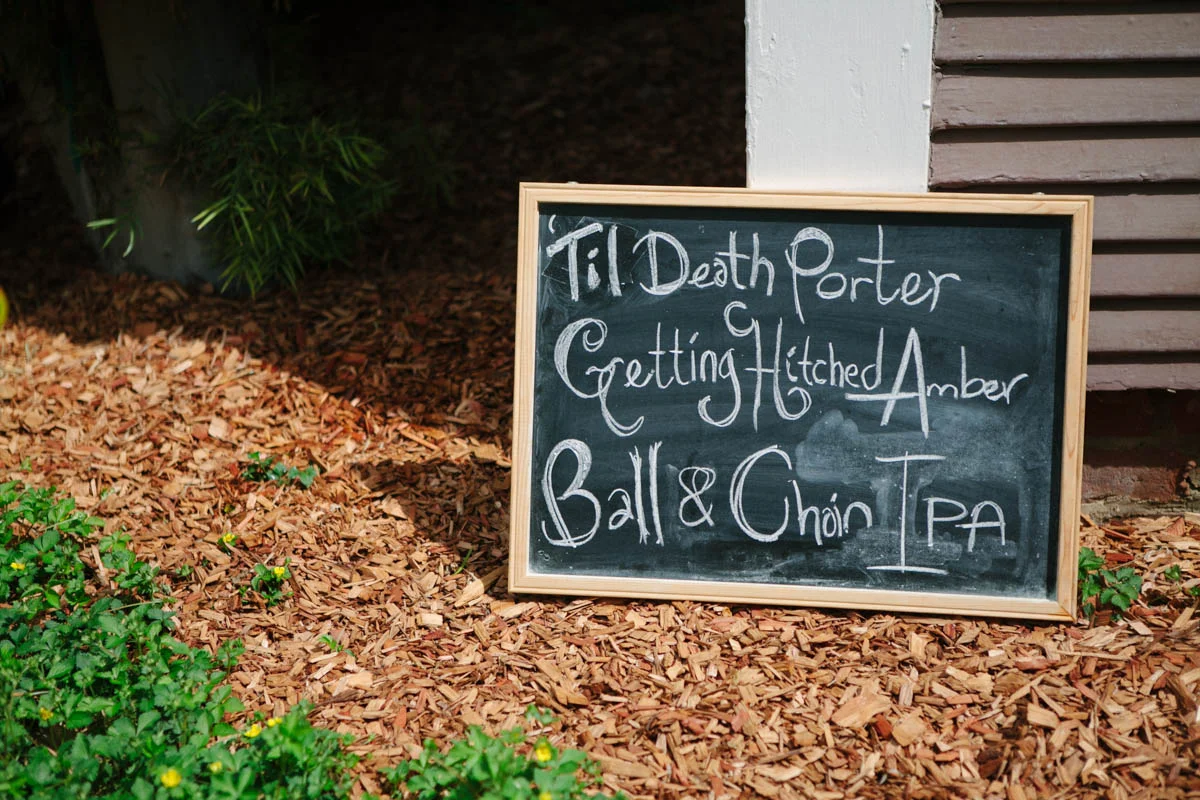 'Til Death Porter
Getting Hitched Amber
Ball & Chain IPA